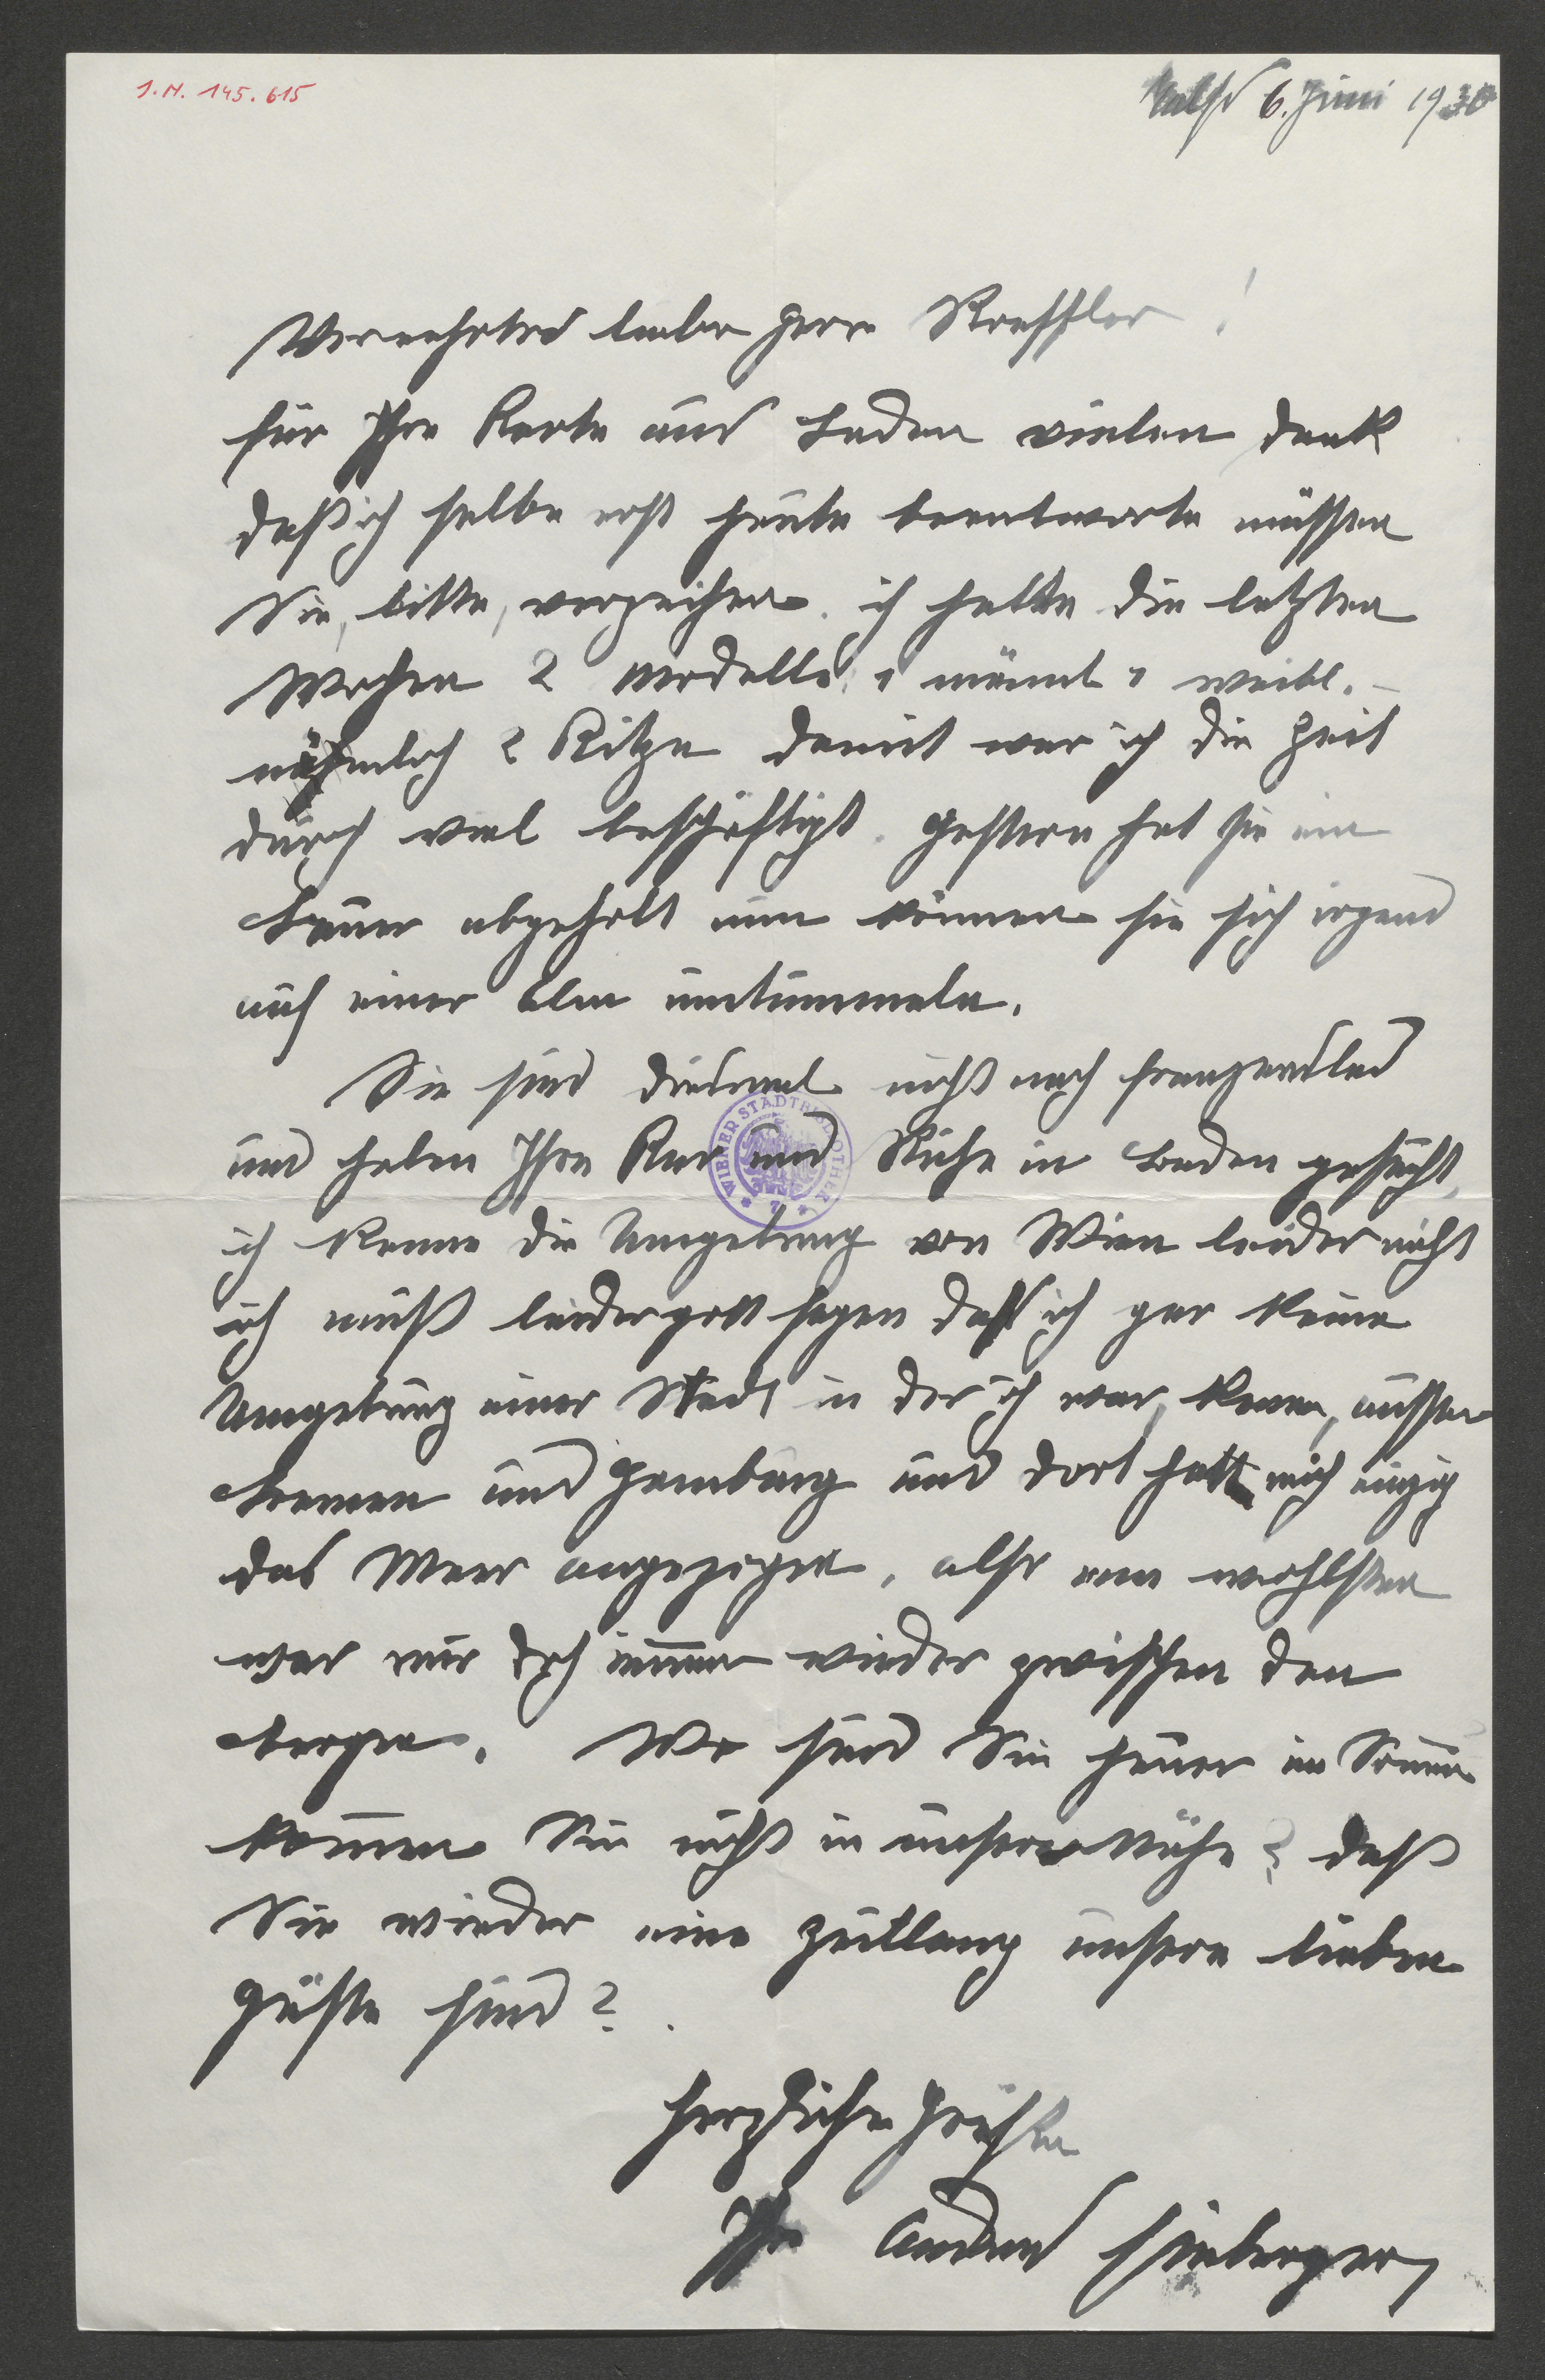 I.N. 145.615
Kals 6. Juni 1930
Verehrter lieber Herr Stoessler!
für Ihre Karte aus Baden vielen Dank
daß ich selbe erst heute beantworte müssen
Sie, bitte, verzeihen. ich hatte die letzten
Wochen 2 Modelle, 1 männl 1 weibl. –
nähmlich 2 Kitze damit war ich die Zeit
durch viel beschäftigt. Gestern hat sie ein
Bauer abgeholt nun können sie sich irgend
auf einer Alm umtummeln.
Sie sind diesmal nicht nach Franzensbad
und haben Ihre Kur und Ruhe in Baden gesucht,
ich kenne die Umgebung von Wien leider nicht
ich muß leidergott sagen daß ich gar keine
Umgebung einer Stadt in der ich war, kenne, ausser
Bremen und Hamburg und dort hatt mich einzig
das Meer angezogen, also am wohlsten
war mir doch immer wieder zwischen den
Bergen. Wo sind Sie heuer im Sommer
kommen Sie nicht in unsere Nähe? daß
Sie wieder eine Zeitlang unsere lieben
Gäste sind?
herzliche Grüße
Ihr
WIENER STADTBIBLIOTHEK